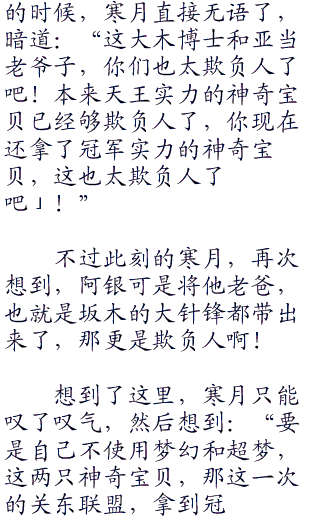 的时候，寒月直接无语了，
暗道：“这大木博士和亚当
老爷子，你们也太欺负人了
吧！本来天王实力的神奇宝
贝已经够欺负人了，你现在
还拿了冠军实力的神奇宝
贝，这也太欺负人了
吧」！”
不过此刻的寒月，再次
想到，阿银可是将他老爸，
也就是坂木的大针锋都带出
来了，那更是欺负人啊！
想到了这里，寒月只能
叹了叹气，然后想到：“要
是自己不使用梦幻和超梦，
这两只神奇宝贝，那这一次
的关东联盟，拿到冠